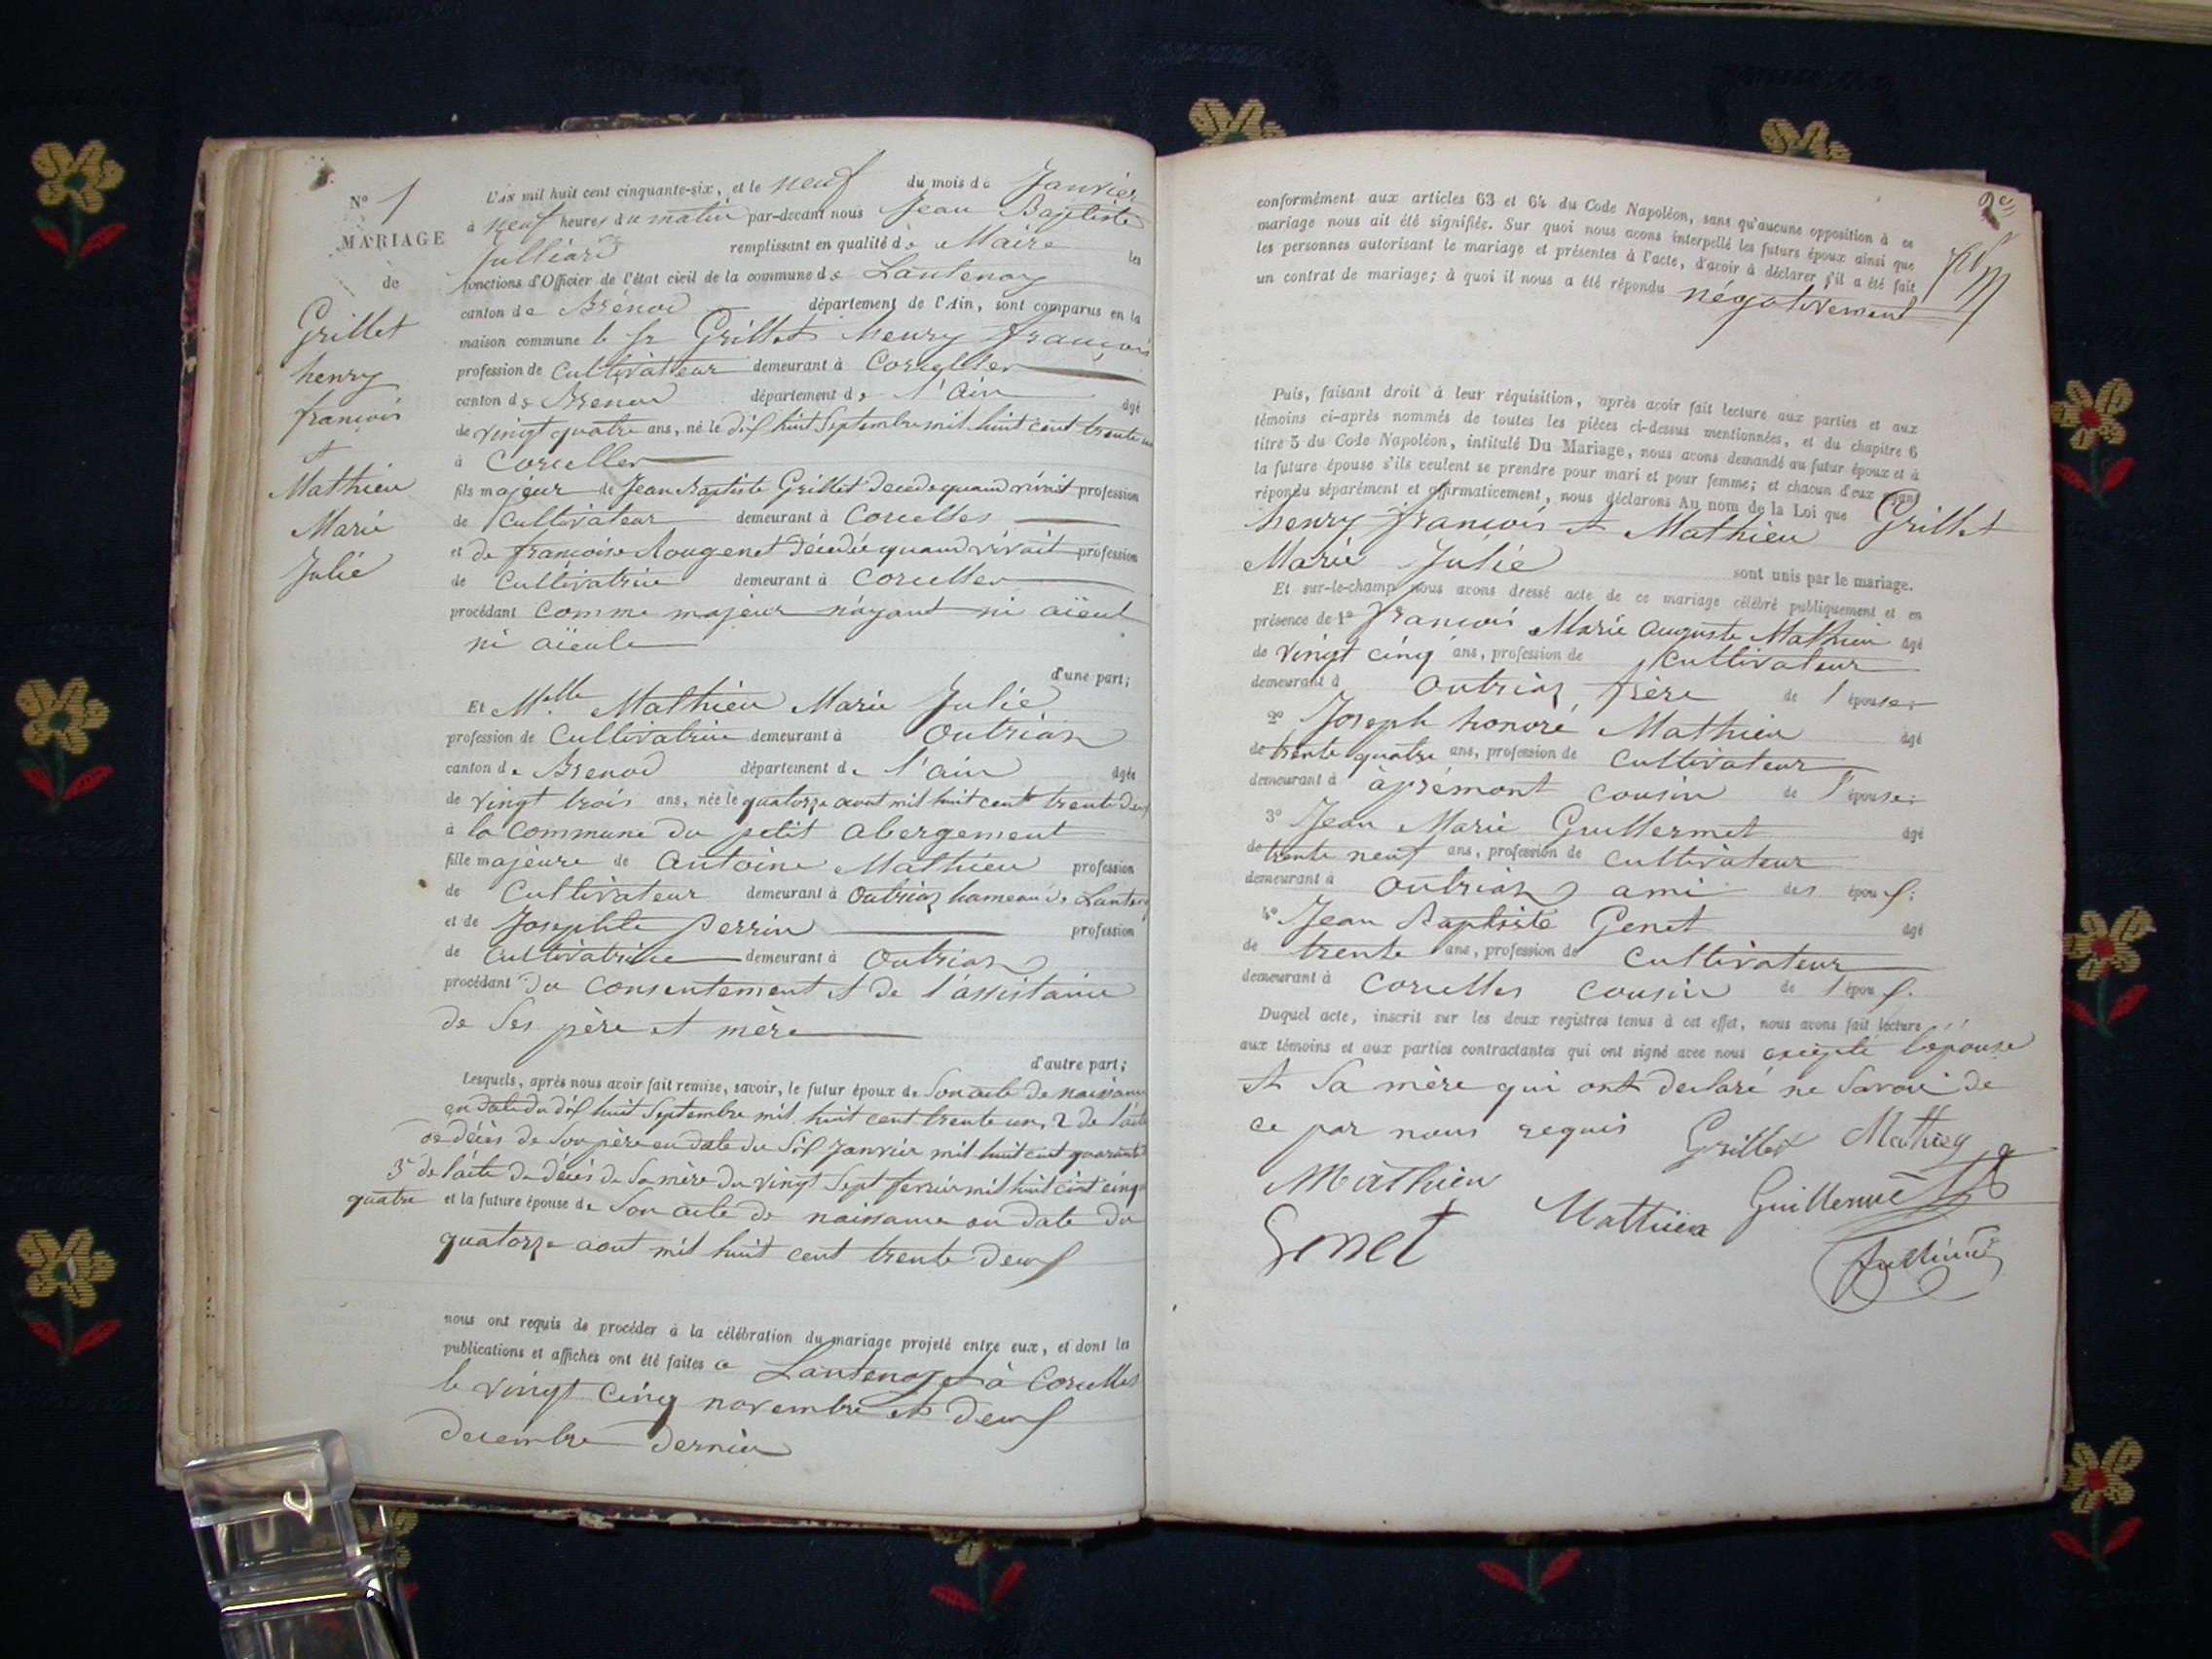 Nº 1
MARIAGE
de
Grillet
henry
françois
et
Mathieu
Marie
Julie
L'AN mil huit cent cinquante-six, et le neuf du mois de Janvier
à neuf heures du matin par-devant nous Jean Baptiste
Julliard remplissant en qualité de Maire les
fonctions d'Officier de l'état civil de la commune de Lantenay
canton de Brénod département de l'Ain, sont comparus en la
maison commune le sr Grillet henry françois
profession de Cultivateur demeurant à Corcelles
canton de Brenod département de l'ain âgé
de vingt quatre ans, né le dix huit Septembre mil huit cent trente un
à Corcelles
fils majeur de Jean Baptiste Grillet decedé quand vivait profession
de Cultivateur demeurant à Corcelles
et de françoise Rougenet décédée quand vivait profession
de Cultivatrice demeurant à Corcelles
procédant comme majeur n'ayant ni aïeul
ni aïeule
d'une part;
Et Melle Mathieu Marie Julie
profession de Cultivatrice demeurant à Outriaz
canton de Brenod département de l'ain âgée
de vingt trois ans, née le quatorze aout mil huit cent trente deux
à la commune du petit abergement
fille majeure de Antoine Mathieu profession
de Cultivateur demeurant à Outriaz hameau de Lantenay
et de Josephte Perrin profession
de Cultivatrice demeurant à Outriaz
procédant du consentement et de l'assistance
de Ses père et mère
d'autre part;
Lesquels, après nous avoir fait remise, savoir, le futur époux de Son acte de naissance
en date du dix huit Septembre mil huit cent trente un, 2 de l'acte
de décès de Son père en date du Six Janvier mil huit cent quarante
3º de l'acte de décès de Sa mère du vingt Sept fevrier mil huit cent cinq
quatre et la future épouse de Son acte de naissance en date du
quatorze aout mil huit cent trente deux
nous ont requis de procéder à la célébration du mariage projeté entre eux, et dont les
publications et affiches ont été faites à Lantenay et à Corcelles
le vingt cinq novembre et deux
decembre dernier
2e
conformément aux articles 63 et 64 du Code Napoléon, sans qu'aucune opposition à ce
mariage nous ait été signifiée. Sur quoi nous avons interpellé les futurs époux ainsi que
les personnes autorisant le mariage et présentes à l'acte, d'avoir à déclarer s'il a été fait
un contrat de mariage; à quoi il nous a été répondu négativement
Puis, faisant droit à leur réquisition, après avoir fait lecture aux parties et aux
témoins ci-après nommés de toutes les pièces ci-dessus mentionnées, et du chapitre 6
titre 5 du Code Napoléon, intitulé Du Mariage, nous avons demandé au futur époux et à
la future épouse s'ils veulent se prendre pour mari et pour femme; et chacun d'eux ayant
répondu séparément et affirmativement, nous déclarons Au nom de la Loi que Grillet
henry françois et Mathieu
Marie Julie sont unis par le mariage.
Et sur-le-champ nous avons dressé acte de ce mariage célébré publiquement et en
présence de 1º françois Marie auguste Mathieu âgé
de vingt cinq ans, profession de Cultivateur
demeurant à Outriaz frère de l'épouse;
2º Joseph honoré Mathieu âgé
de trente quatre ans, profession de Cultivateur
demeurant à àprémont cousin de l'épouse;
3º Jean Marie Guillermet âgé
de trente neuf ans, profession de Cultivateur
demeurant à Outriaz ami des époux;
4º Jean Baptiste Genet âgé
de trente ans, profession de Cultivateur
demeurant à Corcelles cousin de l'époux.
Duquel acte, inscrit sur les deux registres tenus à cet effet, nous avons fait lecture
aux témoins et aux parties contractantes qui ont signé avec nous excepté l'épouse
et Sa mère qui ont declaré ne Savoir de
ce par nous requis Grillet Mathieu
Mathieu
Genet Mathieu Guillermet
Julliard